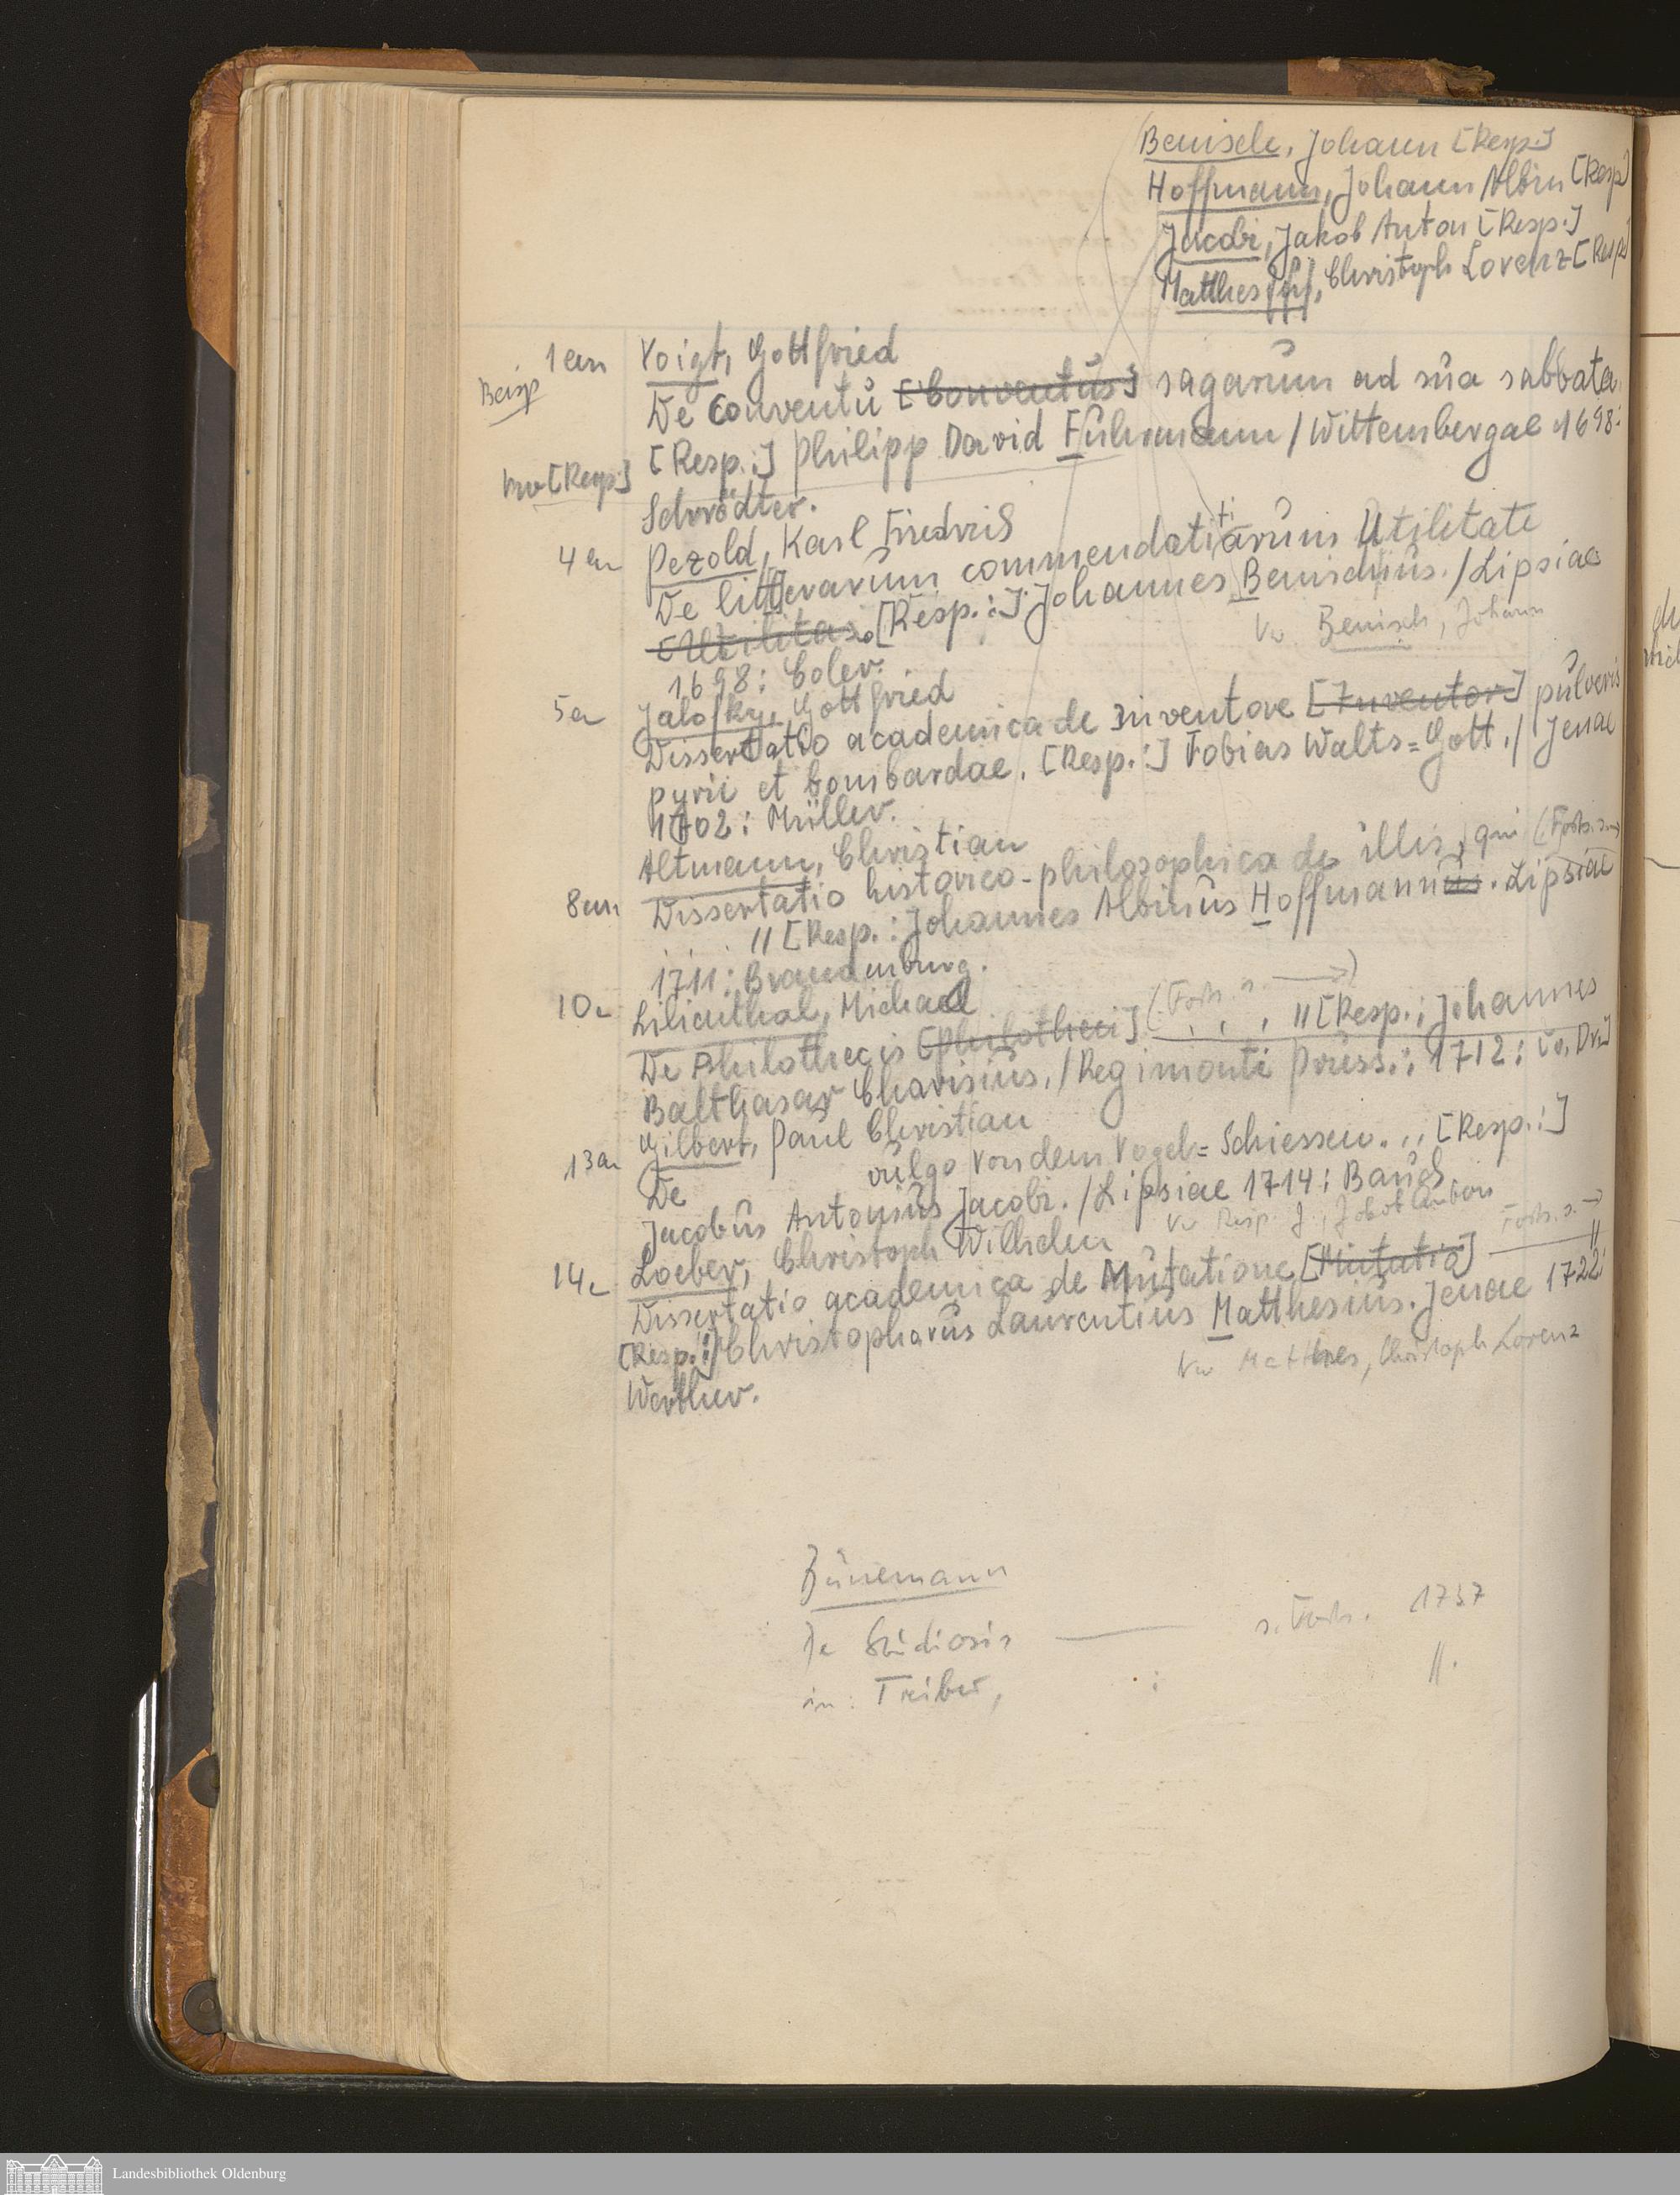 Benisch, Johann [Resp.]
Hoffmann, Johann Albin [Resp]
Jacobi, Jakob Anton [Resp.]
Matthes, Christoph Lorenz [Resp]
1 an Voigt, Gottfried
Beisp De Conventu [Conventus] sagarum ad sua sabbata.
[Resp.:] Philipp David Fuhrmann / Wittembergae 1698:
[Resp] Schrödter.
4 an Pezold, Karl Friedrich
De litterarum commendatitiarum Utilitate
[Utilitas]. [Resp.:] Johannes Benischius. / Lipsiae
Vw. Benisch, Johann
1698: Coler.
5 a Jalofky, Gottfried
Dissertatio academica de inventore [Inventor] pulveris
pyrii et bombardae. [Resp.:] Tobias Walts=Gott. / Jenae
1702: Müller.
Altmann, Christian
8 an Dissertatio historico-philosophica de illis, qui (Forts. s.
. . . // [Resp.: Johannes Albinus Hoffmannus. Lipsiae
1711: Brandenburg.
10 a Lilienthal, Michael
De Philothecis [Philotheci] (Forts. s. →)
. , . , // [Resp.: Johannes
Balthasar Charisius. / Regimonti Pruss.: 1712: v. Dr.]
Gilbert, Paul Christian
13 a De vulgo von dem Vogel=Schiessen. .. [Resp.:]
Jacobus Antonius Jacobi. / Lipsiae 1714: Bauch
Vw Resp. J., Jakob Anton
14 a Loeber, Christoph Wilhelm
Forts. s. →
Dissertatio academica de Mutatione [Mutatio] //
[Resp.:] Christophorus Laurentius Matthesius. Jenae 1722:
Vw Matthes, Christoph Lorenz
Werther.
Bünemann
De Studiosis — s. Forts. 1737
in: Triber, . : //.
Landesbibliothek Oldenburg